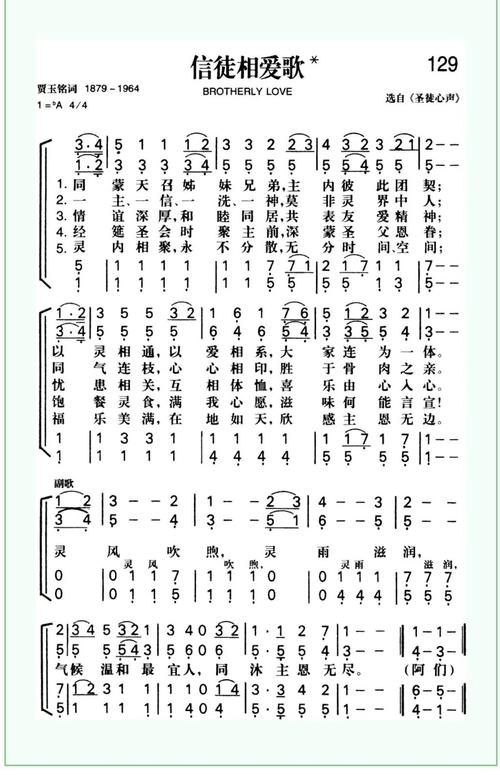 信徒相爱歌*
129
BROTHERLY LOVE
贾玉铭词 1879-1964
1=♭A 4/4
选自《圣徒心声》
1. 同 蒙天召姊 妹兄弟,主 内彼 此团 契;
2. 一 主、一信、一 洗、一神,莫 非灵 界中 人;
3. 情 谊深厚,和 睦同居,共 表友 爱精 神;
4. 经 筵圣会时 聚主前,深 蒙圣 父恩 眷;
5. 灵 内相聚,永 不分散,无 分时 间空 间;
以 灵相通,以 爱相系,大 家连为一体。
同 气连枝,心 心相印,胜 于骨肉之亲。
忧 患相关,互 相体恤,喜 乐由心入心。
饱 餐灵食,满 我心愿,滋 味何能言宣!
福 乐美满,在 地如天,欣 感主恩无边。
副歌
灵 风 吹 煦, 灵 雨 滋 润,
灵 风 吹煦, 灵雨 滋润,
气候 温和最 宜人,同 沐主恩无尽。 (阿们)